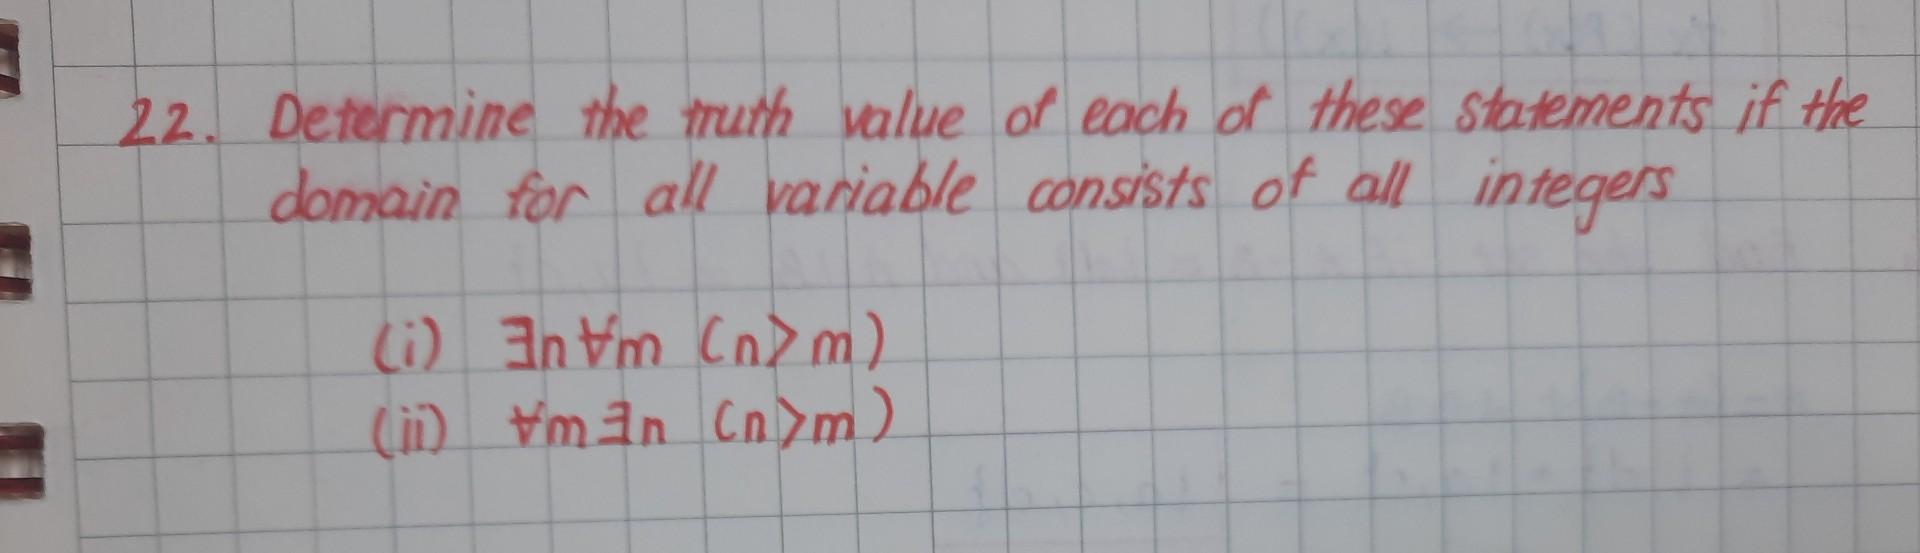 22. Determine the truth value of each of these statements if the
domain for all variable consists of all integers
(i) ∃n∀m (n>m)
(ii) ∀m∃n (n>m)